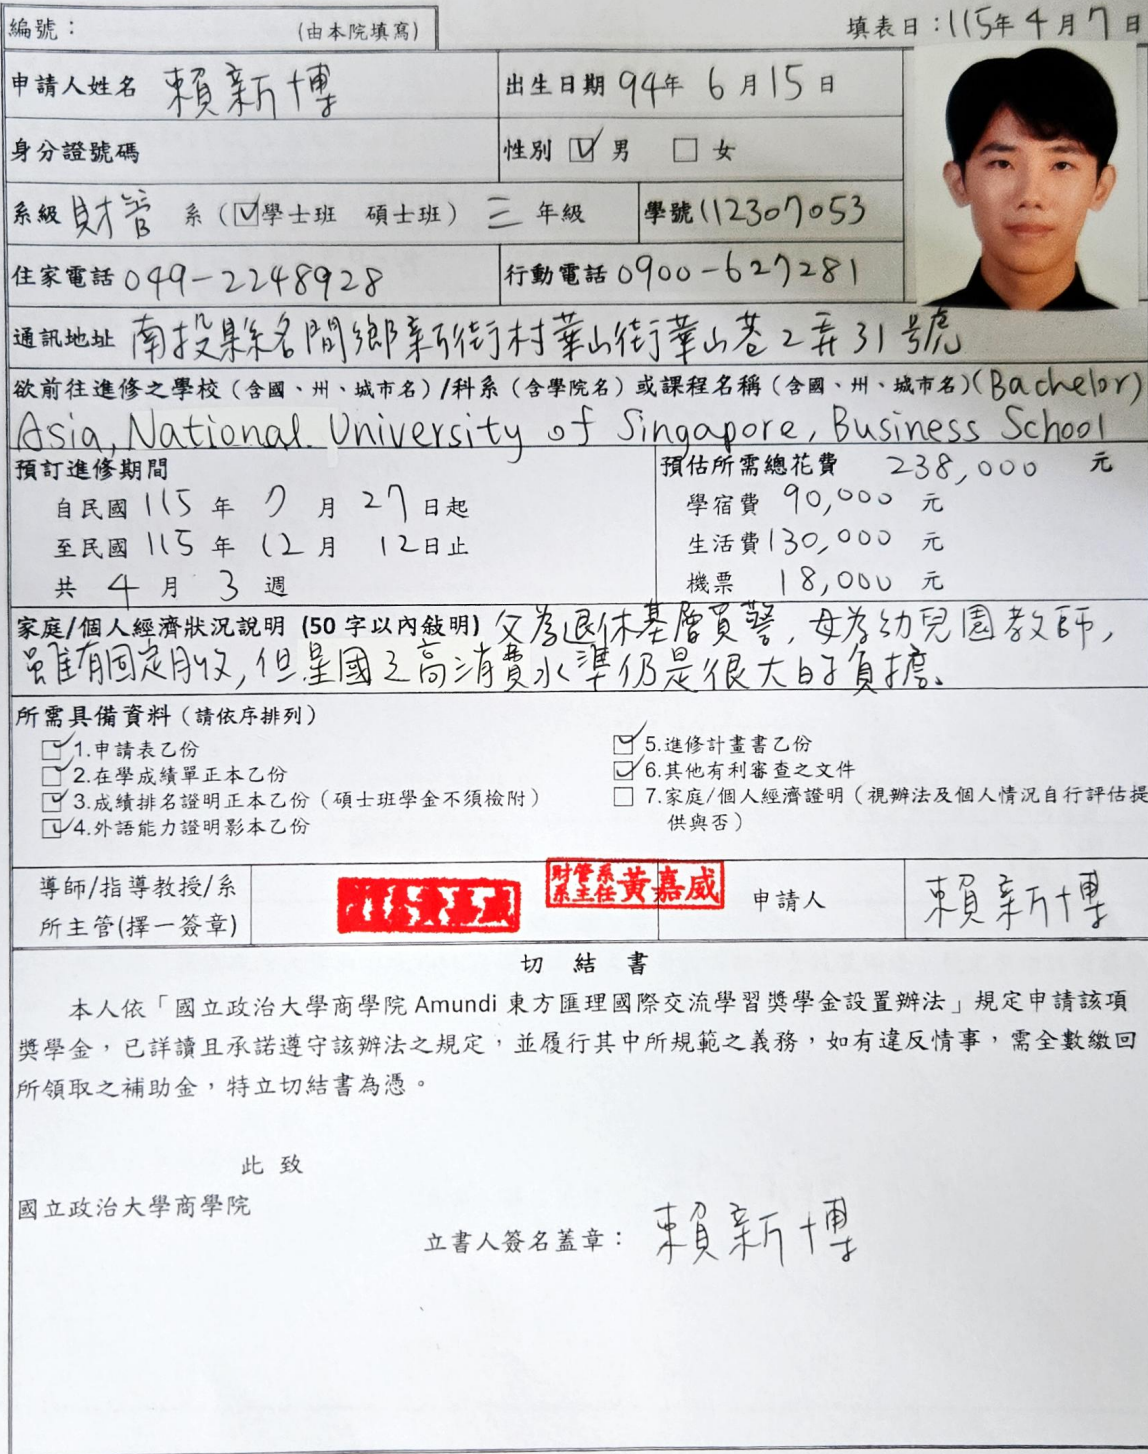 編號： (由本院填寫) 填表日：115年4月7日
申請人姓名 賴新博 出生日期 94年 6月15日
身分證號碼 性別 ☑ 男 ☐ 女
系級 財管 系（☑學士班 碩士班） 三 年級 學號 112307053
住家電話 049-2248928 行動電話 0900-627281
通訊地址 南投縣名間鄉新街村華山街華山巷2弄31號
欲前往進修之學校（含國、州、城市名）/科系（含學院名）或課程名稱（含國、州、城市名）(Bachelor)
Asia, National University of Singapore, Business School
預訂進修期間 預估所需總花費 238,000 元
自民國 115 年 7 月 27 日起 學宿費 90,000 元
至民國 115 年 12 月 12日止 生活費 130,000 元
共 4 月 3 週 機票 18,000 元
家庭/個人經濟狀況說明 (50字以內敍明) 父為退休基層員警，母為幼兒園教師，
雖有固定月收，但星國之高消費水準仍是很大的負擔。
所需具備資料（請依序排列）
☑ 1.申請表乙份 ☑ 5.進修計畫書乙份
☑ 2.在學成績單正本乙份 ☑ 6.其他有利審查之文件
☑ 3.成績排名證明正本乙份（碩士班學金不須檢附） ☐ 7.家庭/個人經濟證明（視辦法及個人情況自行評估提
☑ 4.外語能力證明影本乙份 供與否）
導師/指導教授/系 財管系
所主管(擇一簽章) 系主任 黃嘉威 申請人 賴新博
切 結 書
本人依「國立政治大學商學院 Amundi 東方匯理國際交流學習獎學金設置辦法」規定申請該項
獎學金，已詳讀且承諾遵守該辦法之規定，並履行其中所規範之義務，如有違反情事，需全數繳回
所領取之補助金，特立切結書為憑。
此 致
國立政治大學商學院
立書人簽名蓋章： 賴新博